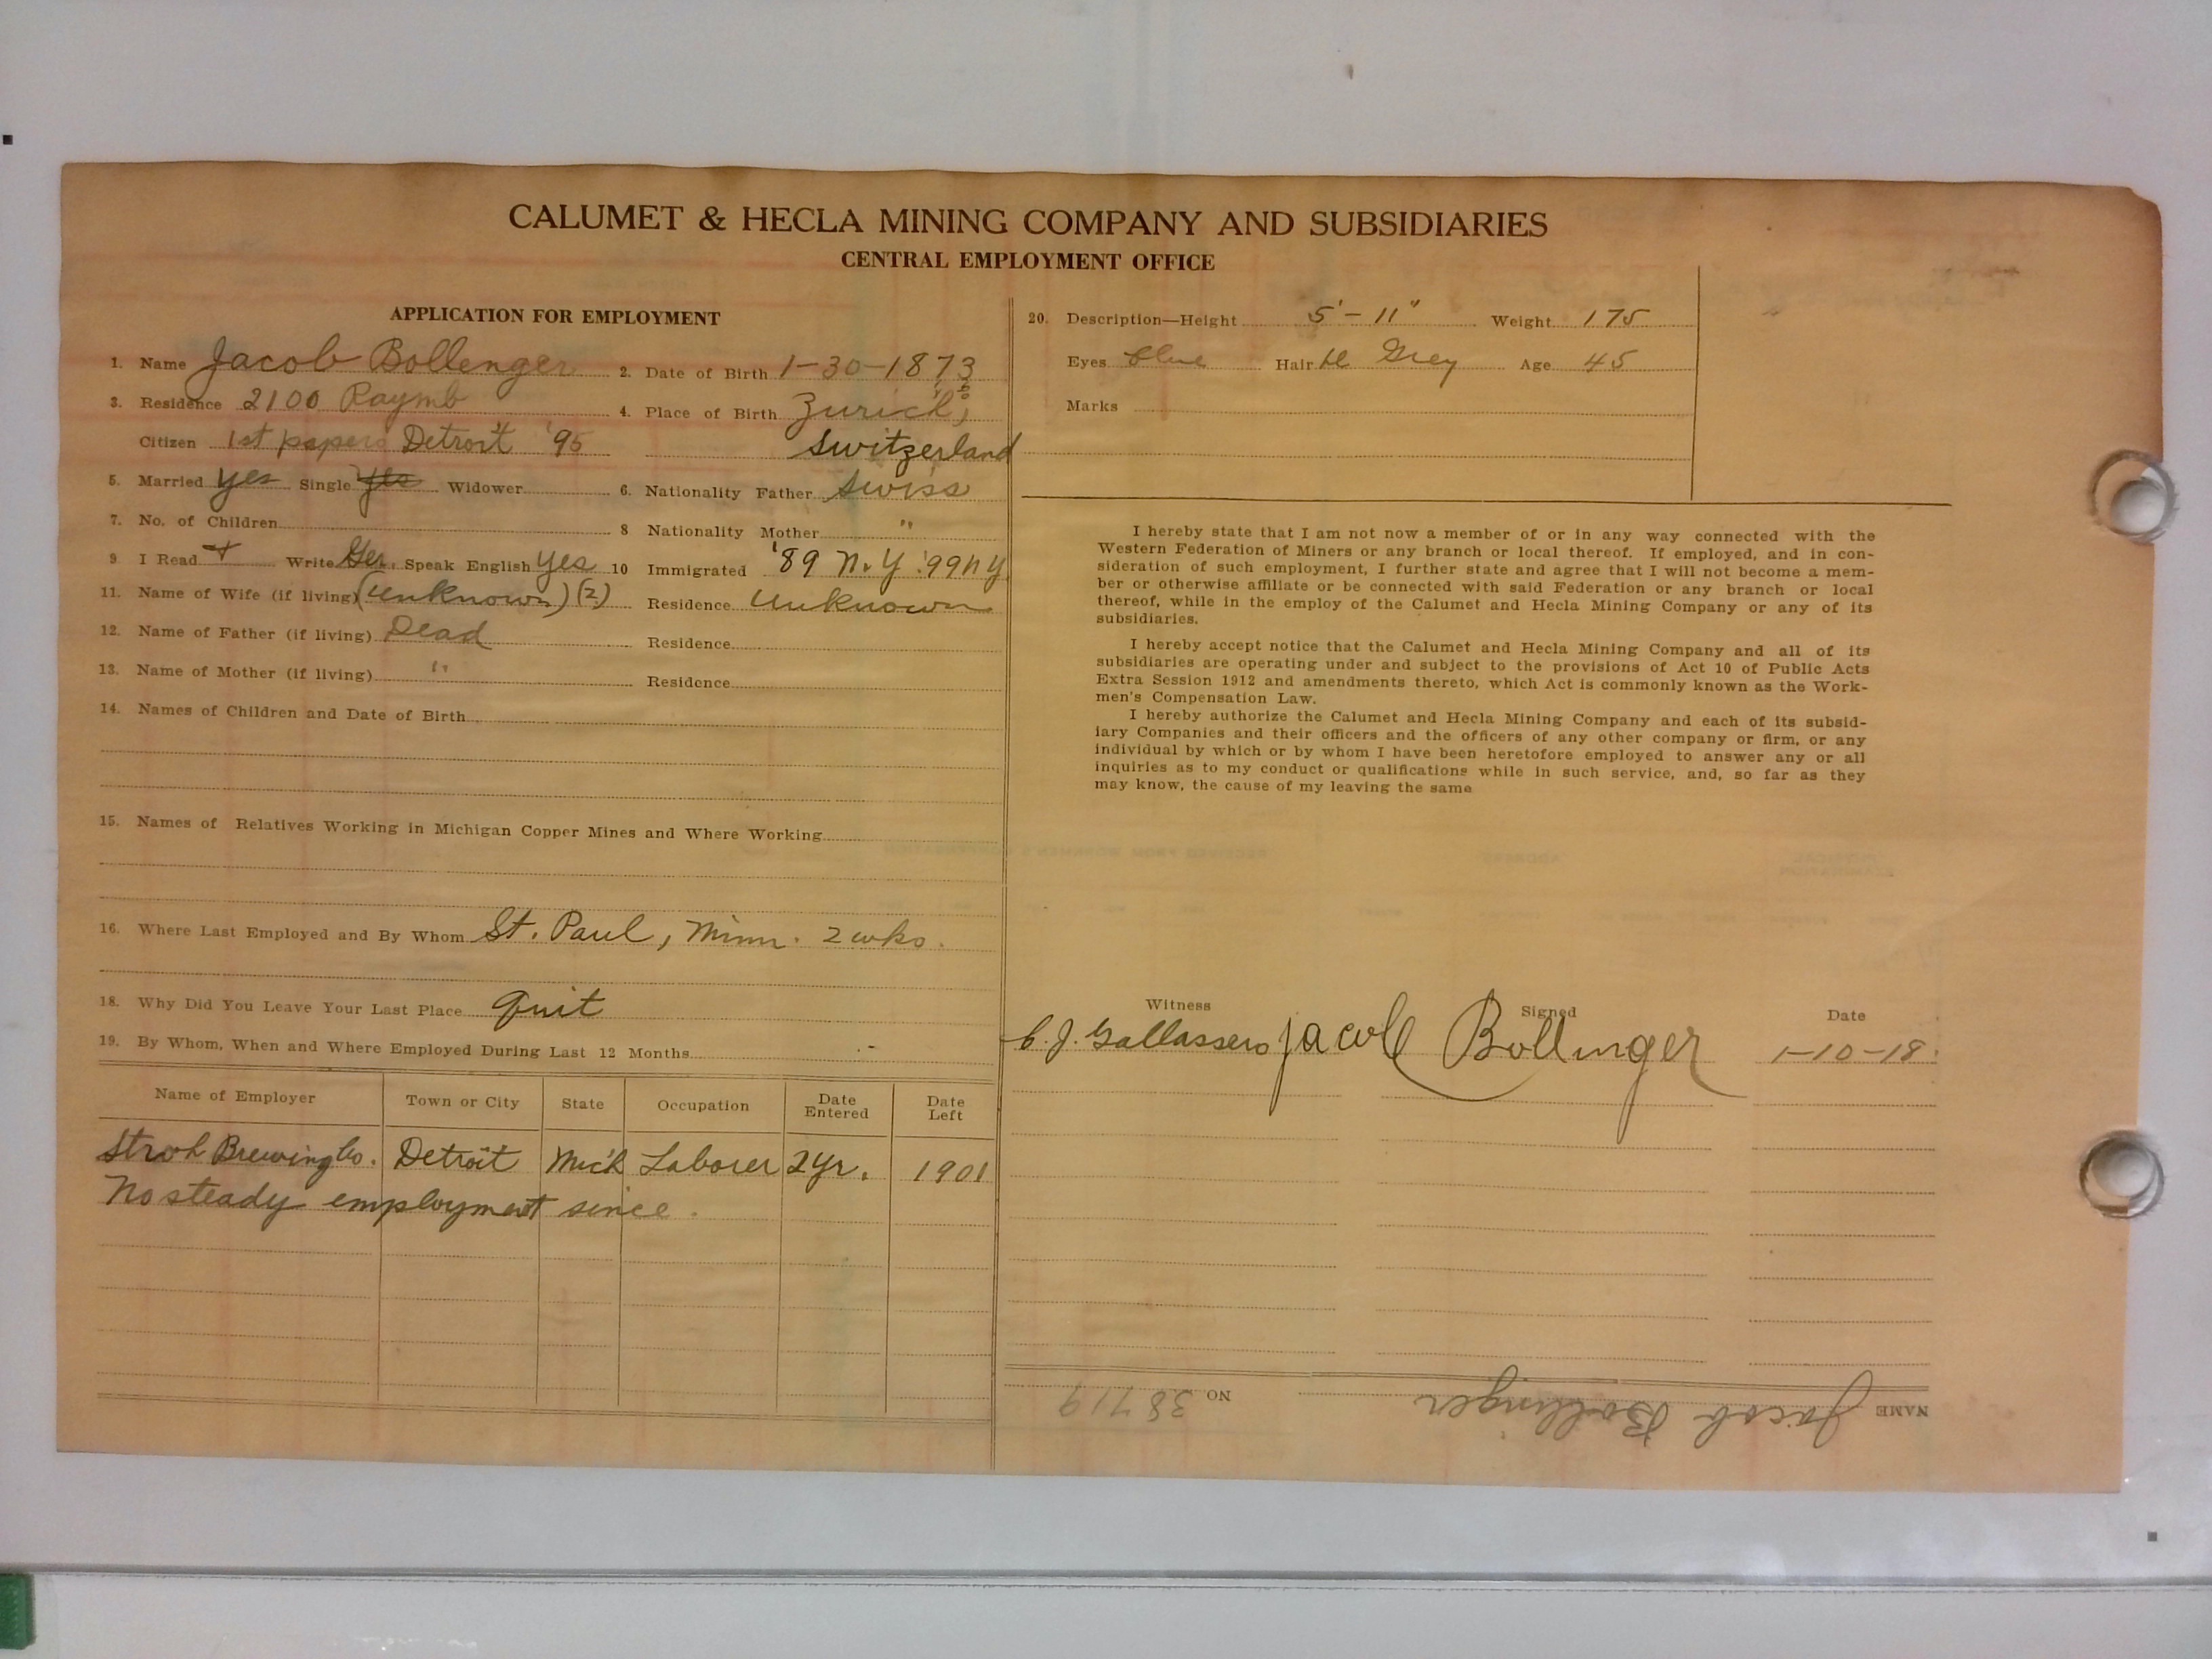 CALUMET & HECLA MINING COMPANY AND SUBSIDIARIES
CENTRAL EMPLOYMENT OFFICE
APPLICATION FOR EMPLOYMENT
1. Name Jacob Bollenger 2. Date of Birth 1-30-1873
3. Residence 2100 Raymb 4. Place of Birth Zurich,
Citizen 1st papers Detroit '95 Switzerland
5. Married Yes Single Yes Widower 6. Nationality Father Swiss
7. No. of Children 8 Nationality Mother "
9 I Read + Write Ger. Speak English Yes 10 Immigrated '89 N.Y. '99 N Y
11. Name of Wife (if living) (Unknown) (2) Residence Unknown
12. Name of Father (if living) Dead Residence
13. Name of Mother (if living) " Residence
14. Names of Children and Date of Birth
15. Names of Relatives Working in Michigan Copper Mines and Where Working
16. Where Last Employed and By Whom St. Paul, Minn. 2 wks.
18. Why Did You Leave Your Last Place Quit
19. By Whom, When and Where Employed During Last 12 Months
Name of Employer Town or City State Occupation Date Entered Date Left
Stroh Brewing Co. Detroit Mich Laborer 2 yr. 1901
No steady employment since.
20. Description—Height 5'-11" Weight 175
Eyes blue Hair Grey Age 45
Marks
I hereby state that I am not now a member of or in any way connected with the
Western Federation of Miners or any branch or local thereof. If employed, and in con-
sideration of such employment, I further state and agree that I will not become a mem-
ber or otherwise affiliate or be connected with said Federation or any branch or local
thereof, while in the employ of the Calumet and Hecla Mining Company or any of its
subsidiaries.
I hereby accept notice that the Calumet and Hecla Mining Company and all of its
subsidiaries are operating under and subject to the provisions of Act 10 of Public Acts
Extra Session 1912 and amendments thereto, which Act is commonly known as the Work-
men's Compensation Law.
I hereby authorize the Calumet and Hecla Mining Company and each of its subsid-
iary Companies and their officers and the officers of any other company or firm, or any
individual by which or by whom I have been heretofore employed to answer any or all
inquiries as to my conduct or qualifications while in such service, and, so far as they
may know, the cause of my leaving the same
Witness Signed Date
C. J. Jacob Bollinger 1-10-18.
NAME Jacob Bollinger NO 38719